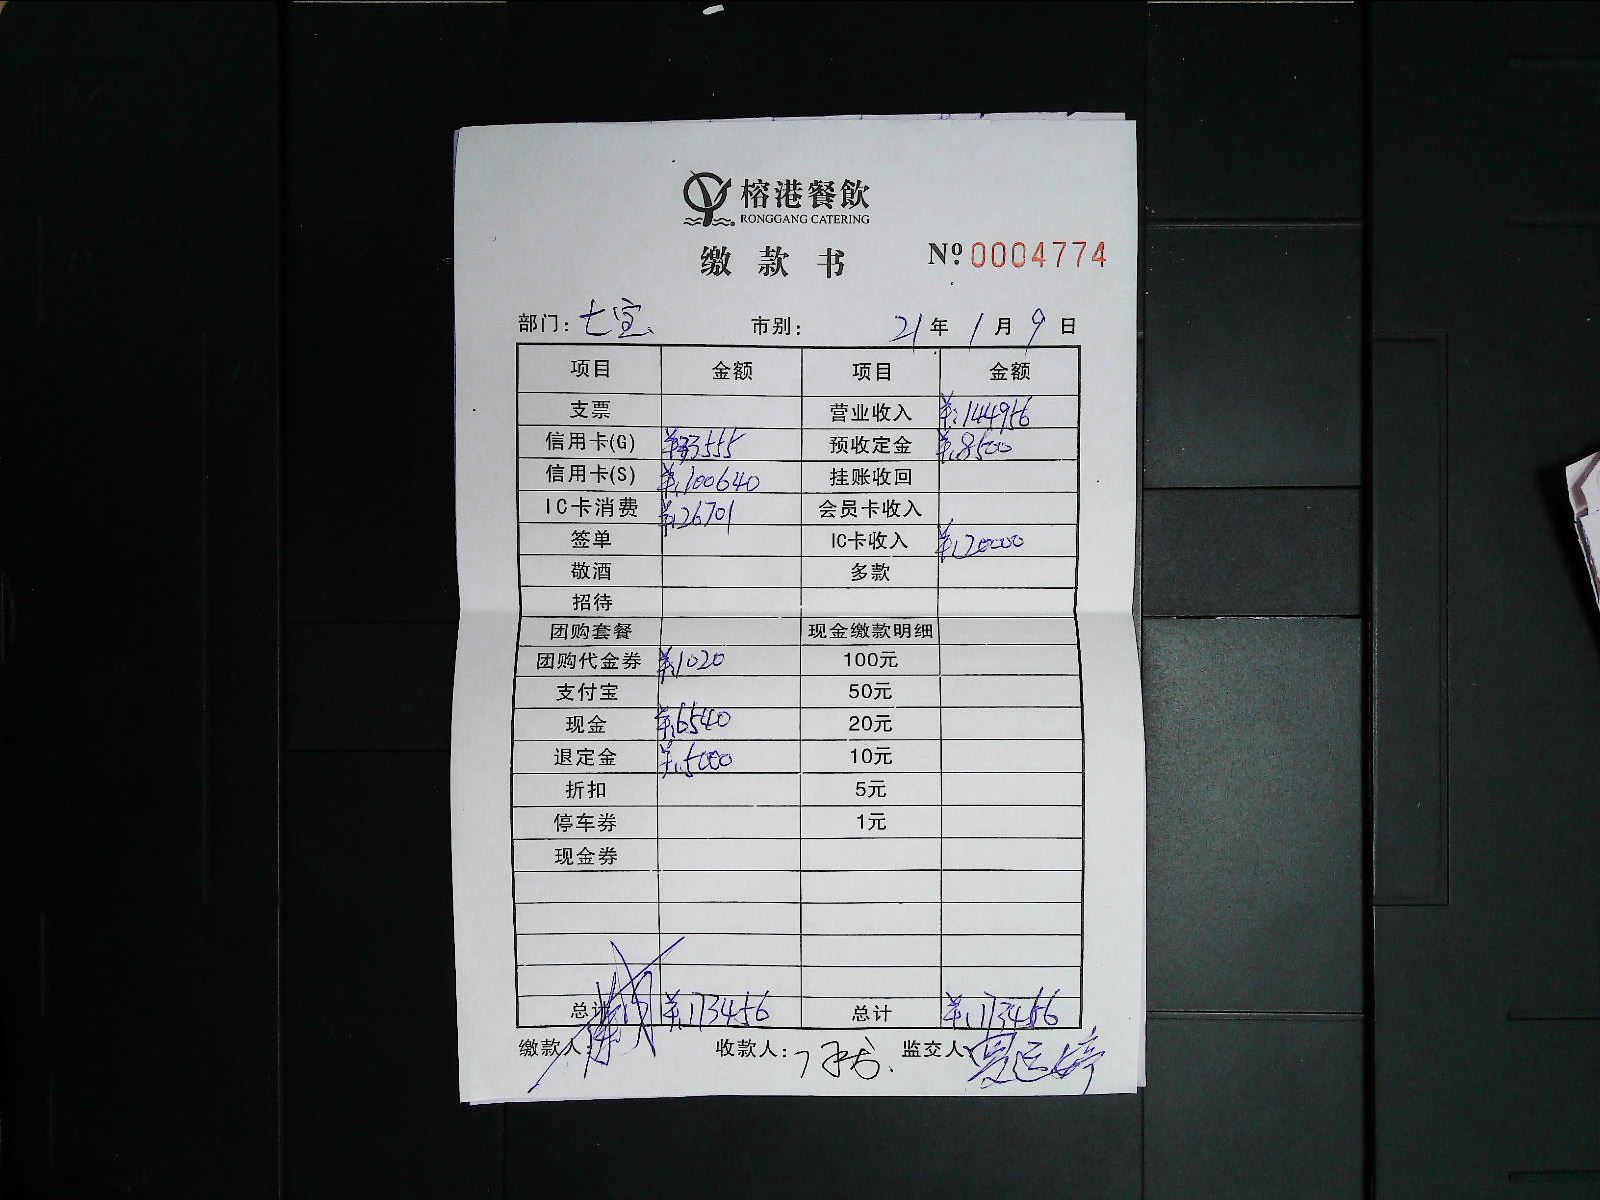 榕港餐飲
RONGGANG CATERING
缴款书 Nº 0004774
部门: 七宝 市别: 21年1月9日
项目 金额 项目 金额
支票 营业收入 ¥:144956
信用卡(G) ¥33555 预收定金 ¥.8500
信用卡(S) ¥.100640 挂账收回
IC卡消费 ¥.26701 会员卡收入
签单 IC卡收入 ¥.20000
敬酒 多款
招待
团购套餐 现金缴款明细
团购代金券 ¥.1020 100元
支付宝 50元
现金 ¥.6540 20元
退定金 ¥.5000 10元
折扣 5元
停车券 1元
现金券
总计 ¥.173456 总计 ¥.173456
缴款人: 收款人: 监交人